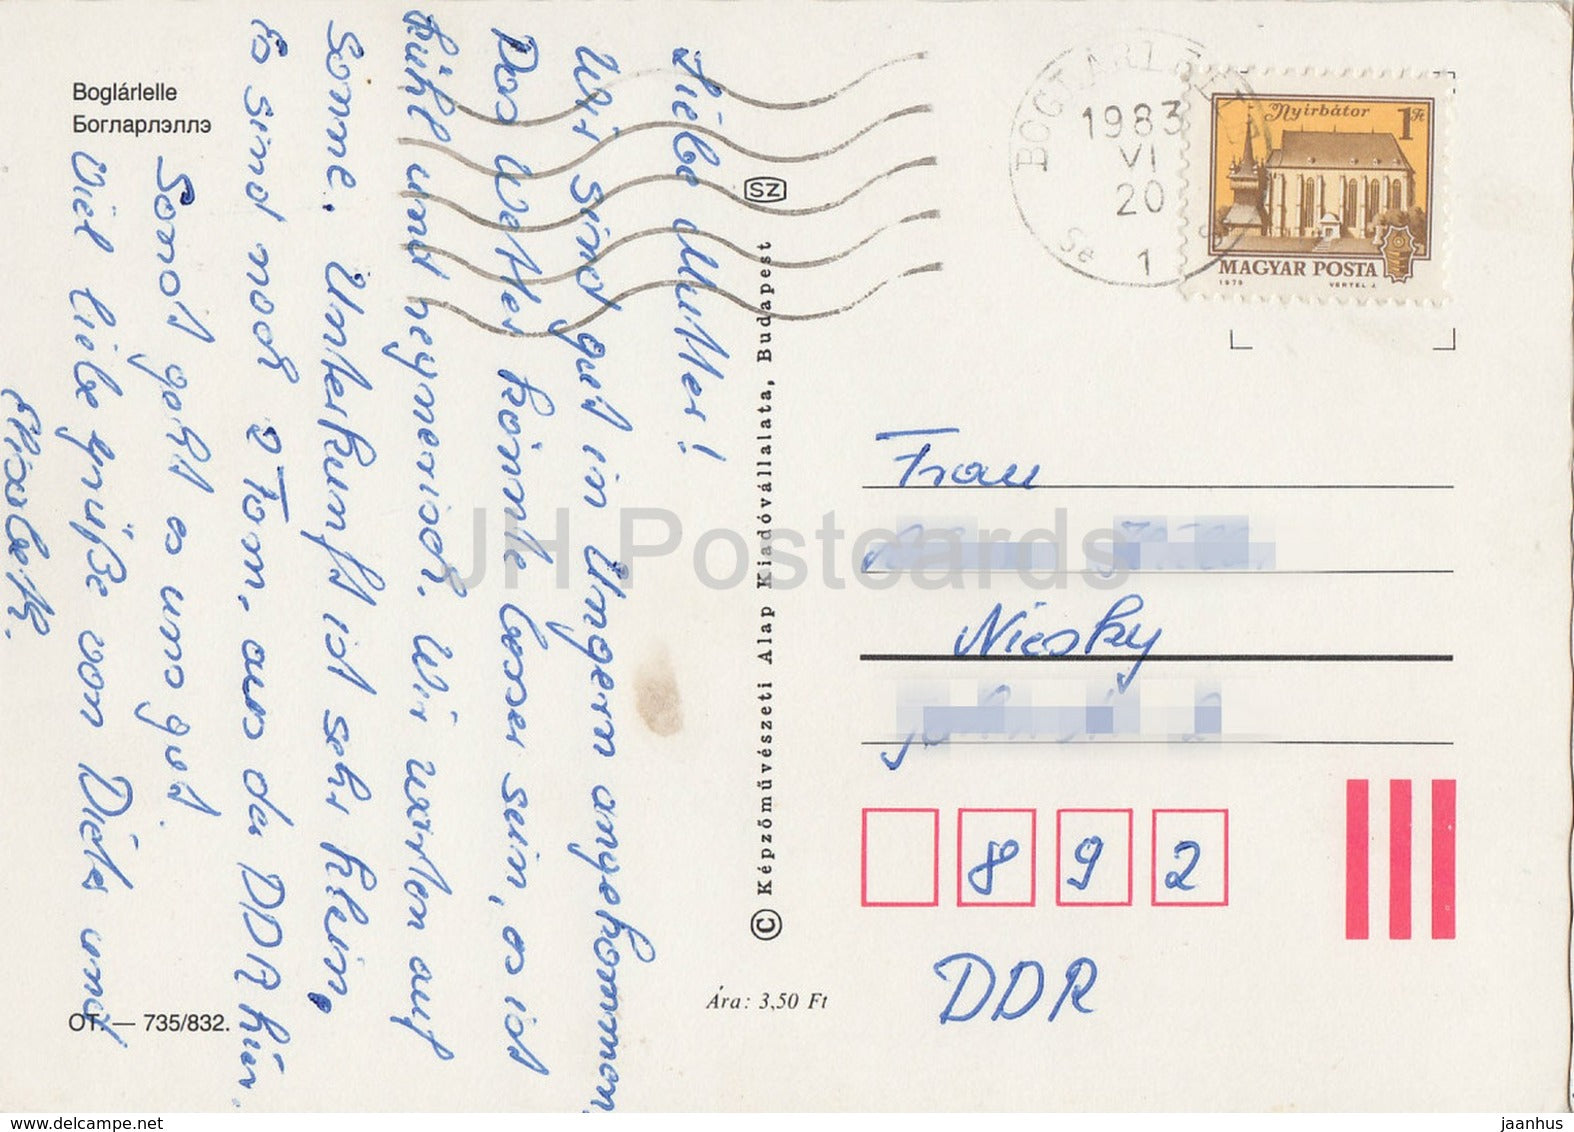 Boglárlelle
Богларлэллэ
Liebe Mutter!
Wir sind gut in Ungarn angekommen.
Das Wetter könnte besser sein, es ist
kühl und regnerisch. Wir warten auf
Sonne. Unterkunft ist sehr klein,
Es sind noch 2 Fam. aus der DDR hier.
Sonst geht es uns gut.
Viel liebe Grüße von Dieter und
OT. — 735/832.
© Képzőművészeti Alap Kiadóvállalata, Budapest
SZ
Ára: 3,50 Ft
BOGLÁRLELLE
1983
VI
20
1
Nyírbátor 1 Ft
MAGYAR POSTA
1979 VERTEL J.
Frau
Niesky
892
DDR
JH Postcards
delcampe.net
jaanhus